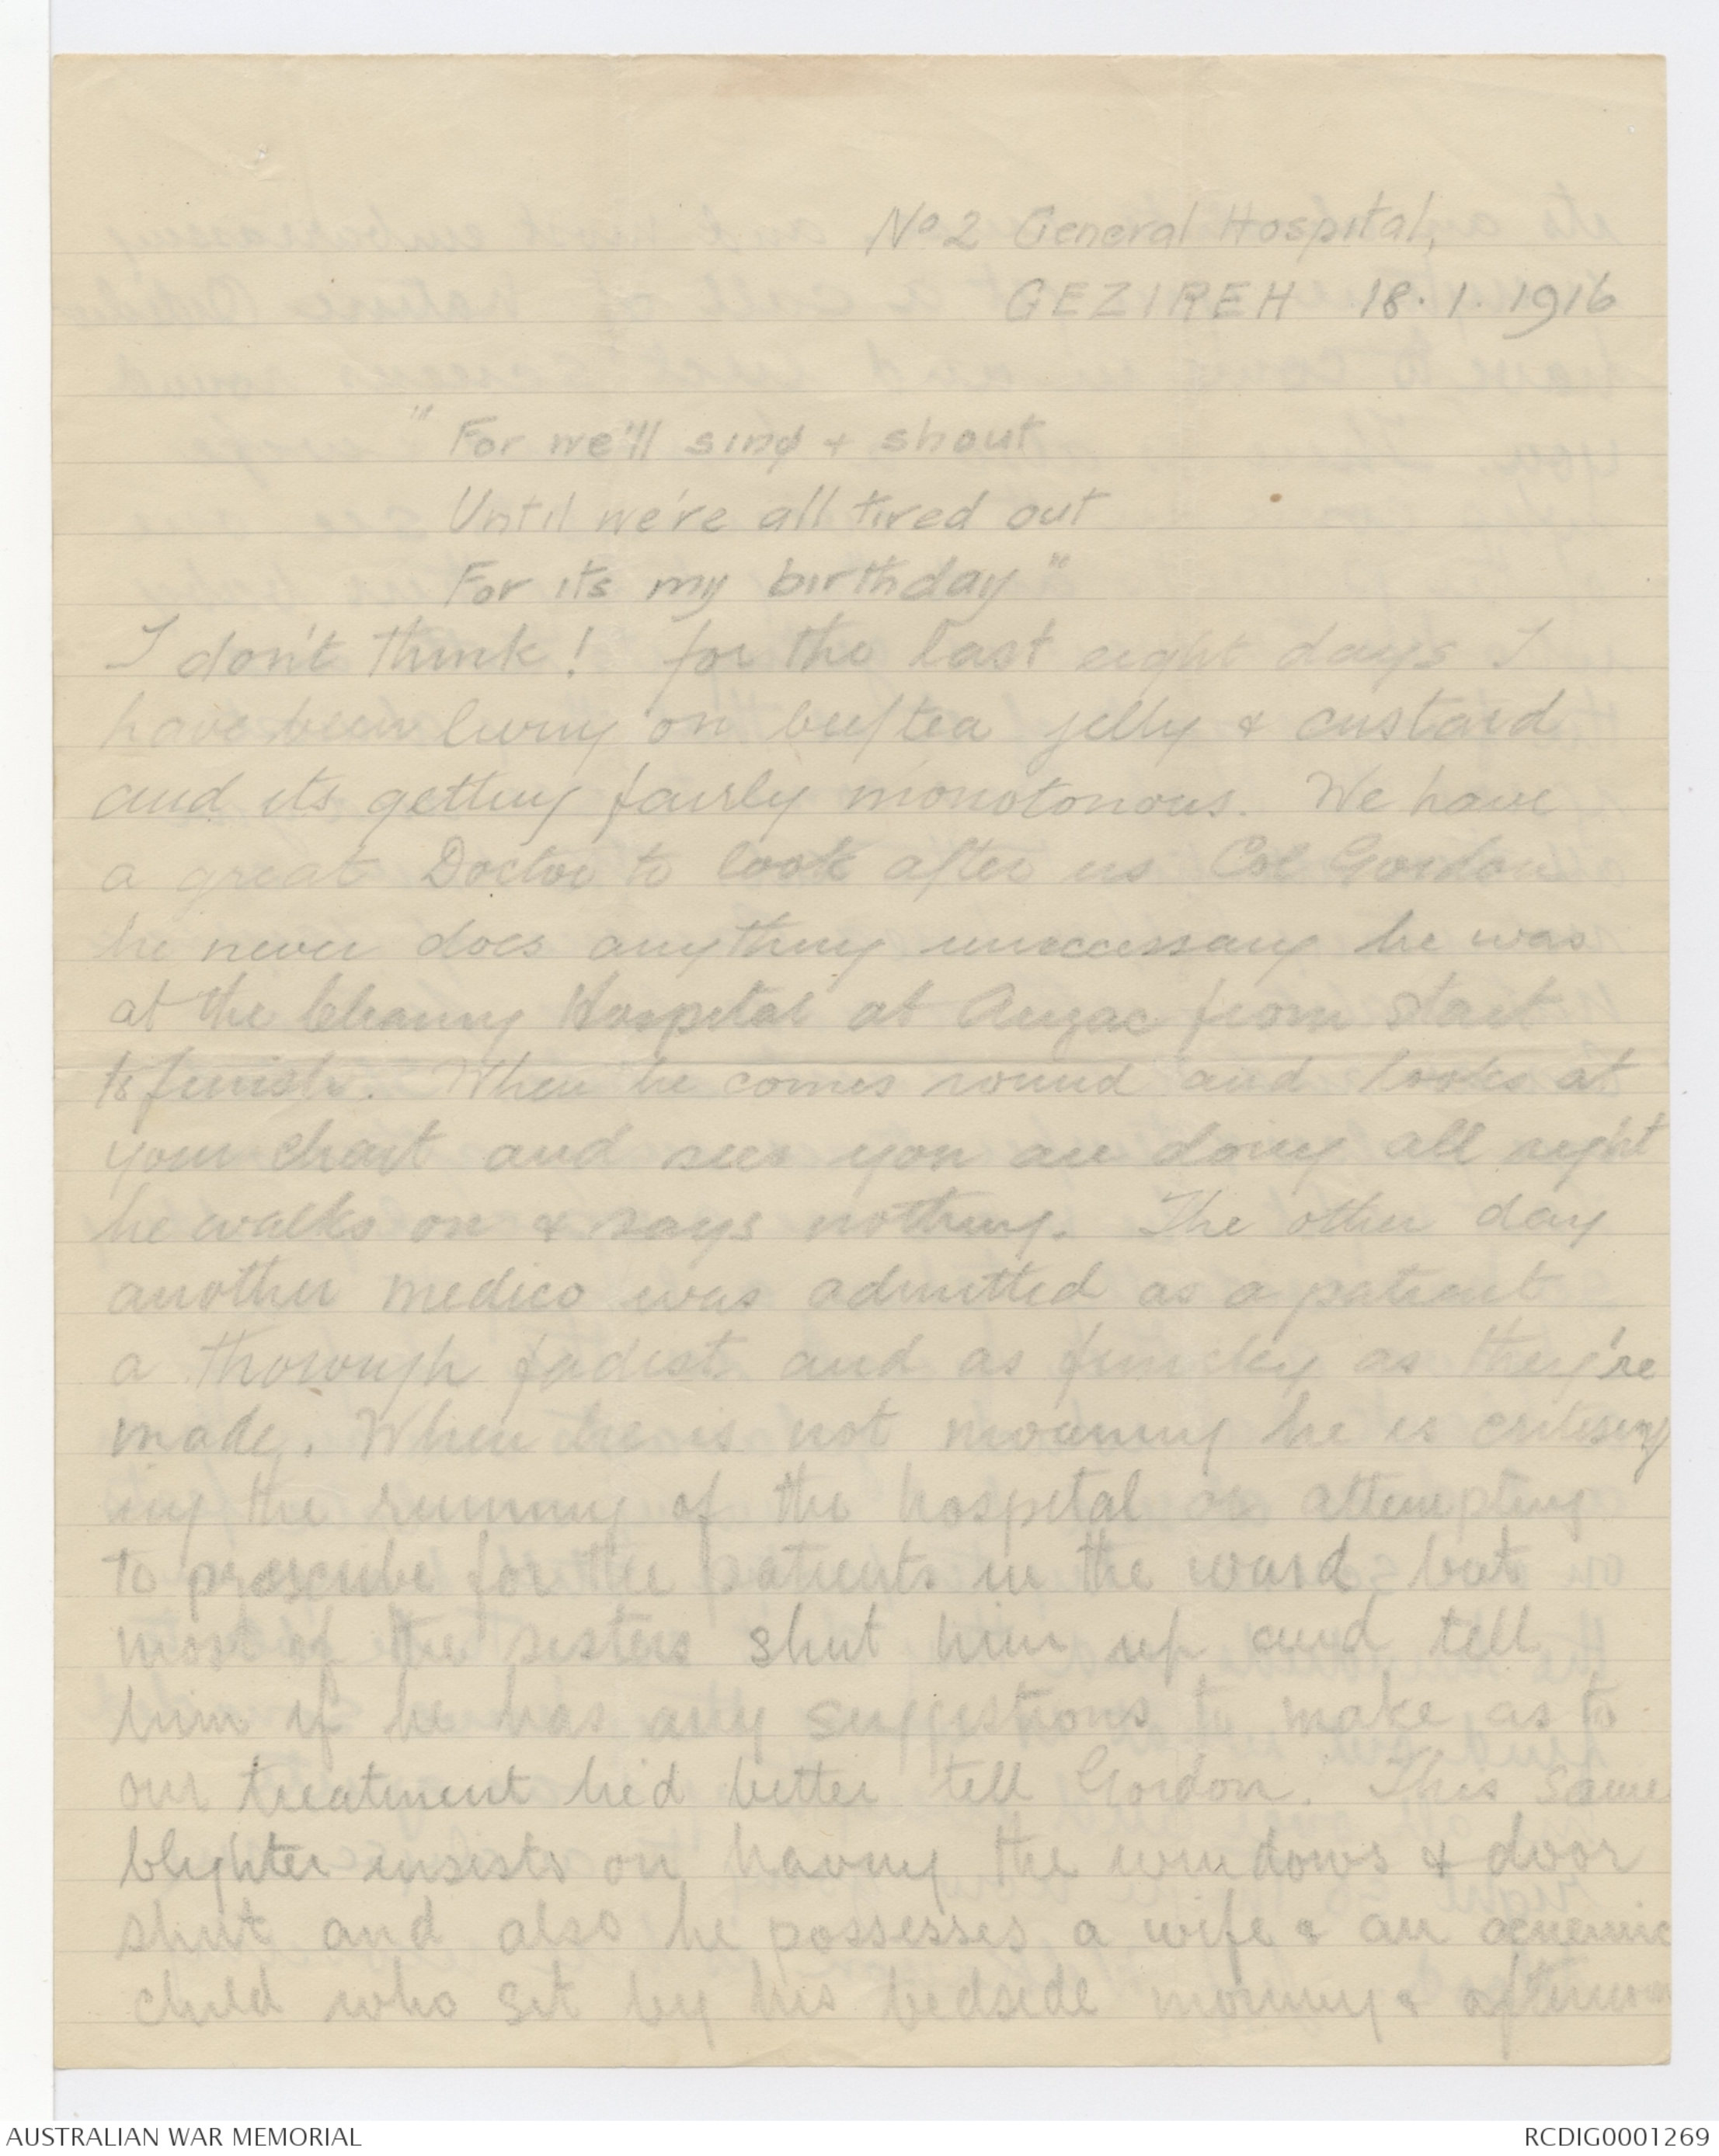 No 2 General Hospital,
GEZIREH 18.1.1916
"For we'll sing + shout
Until we're all tired out
For its my birthday"
I don't think! for the last eight days I
have been living on beeftea jelly & custard
and its getting fairly monotonous. We have
a great Doctor to look after us Col Gordon
he never does anything unnecessary he was
at the Clearing Hospital at Anzac from start
to finish. When he comes round and looks at
your chart and sees you are doing all right
he walks on & says nothing. The other day
another medico was admitted as a patient
a thorough fadist and as finicky as they're
made. When he is not moaning he is
ing the running of the hospital or attempting
to prescribe for the patients in the ward but
most of the sisters shut him up and tell
him if he has any suggestions to make as to
our treatment he'd better tell Gordon. This same
blighter insists on having the windows & door
shut and also he possesses a wife & an
child who sit by his bedside morning & afternoon
AUSTRALIAN WAR MEMORIAL
RCDIG0001269